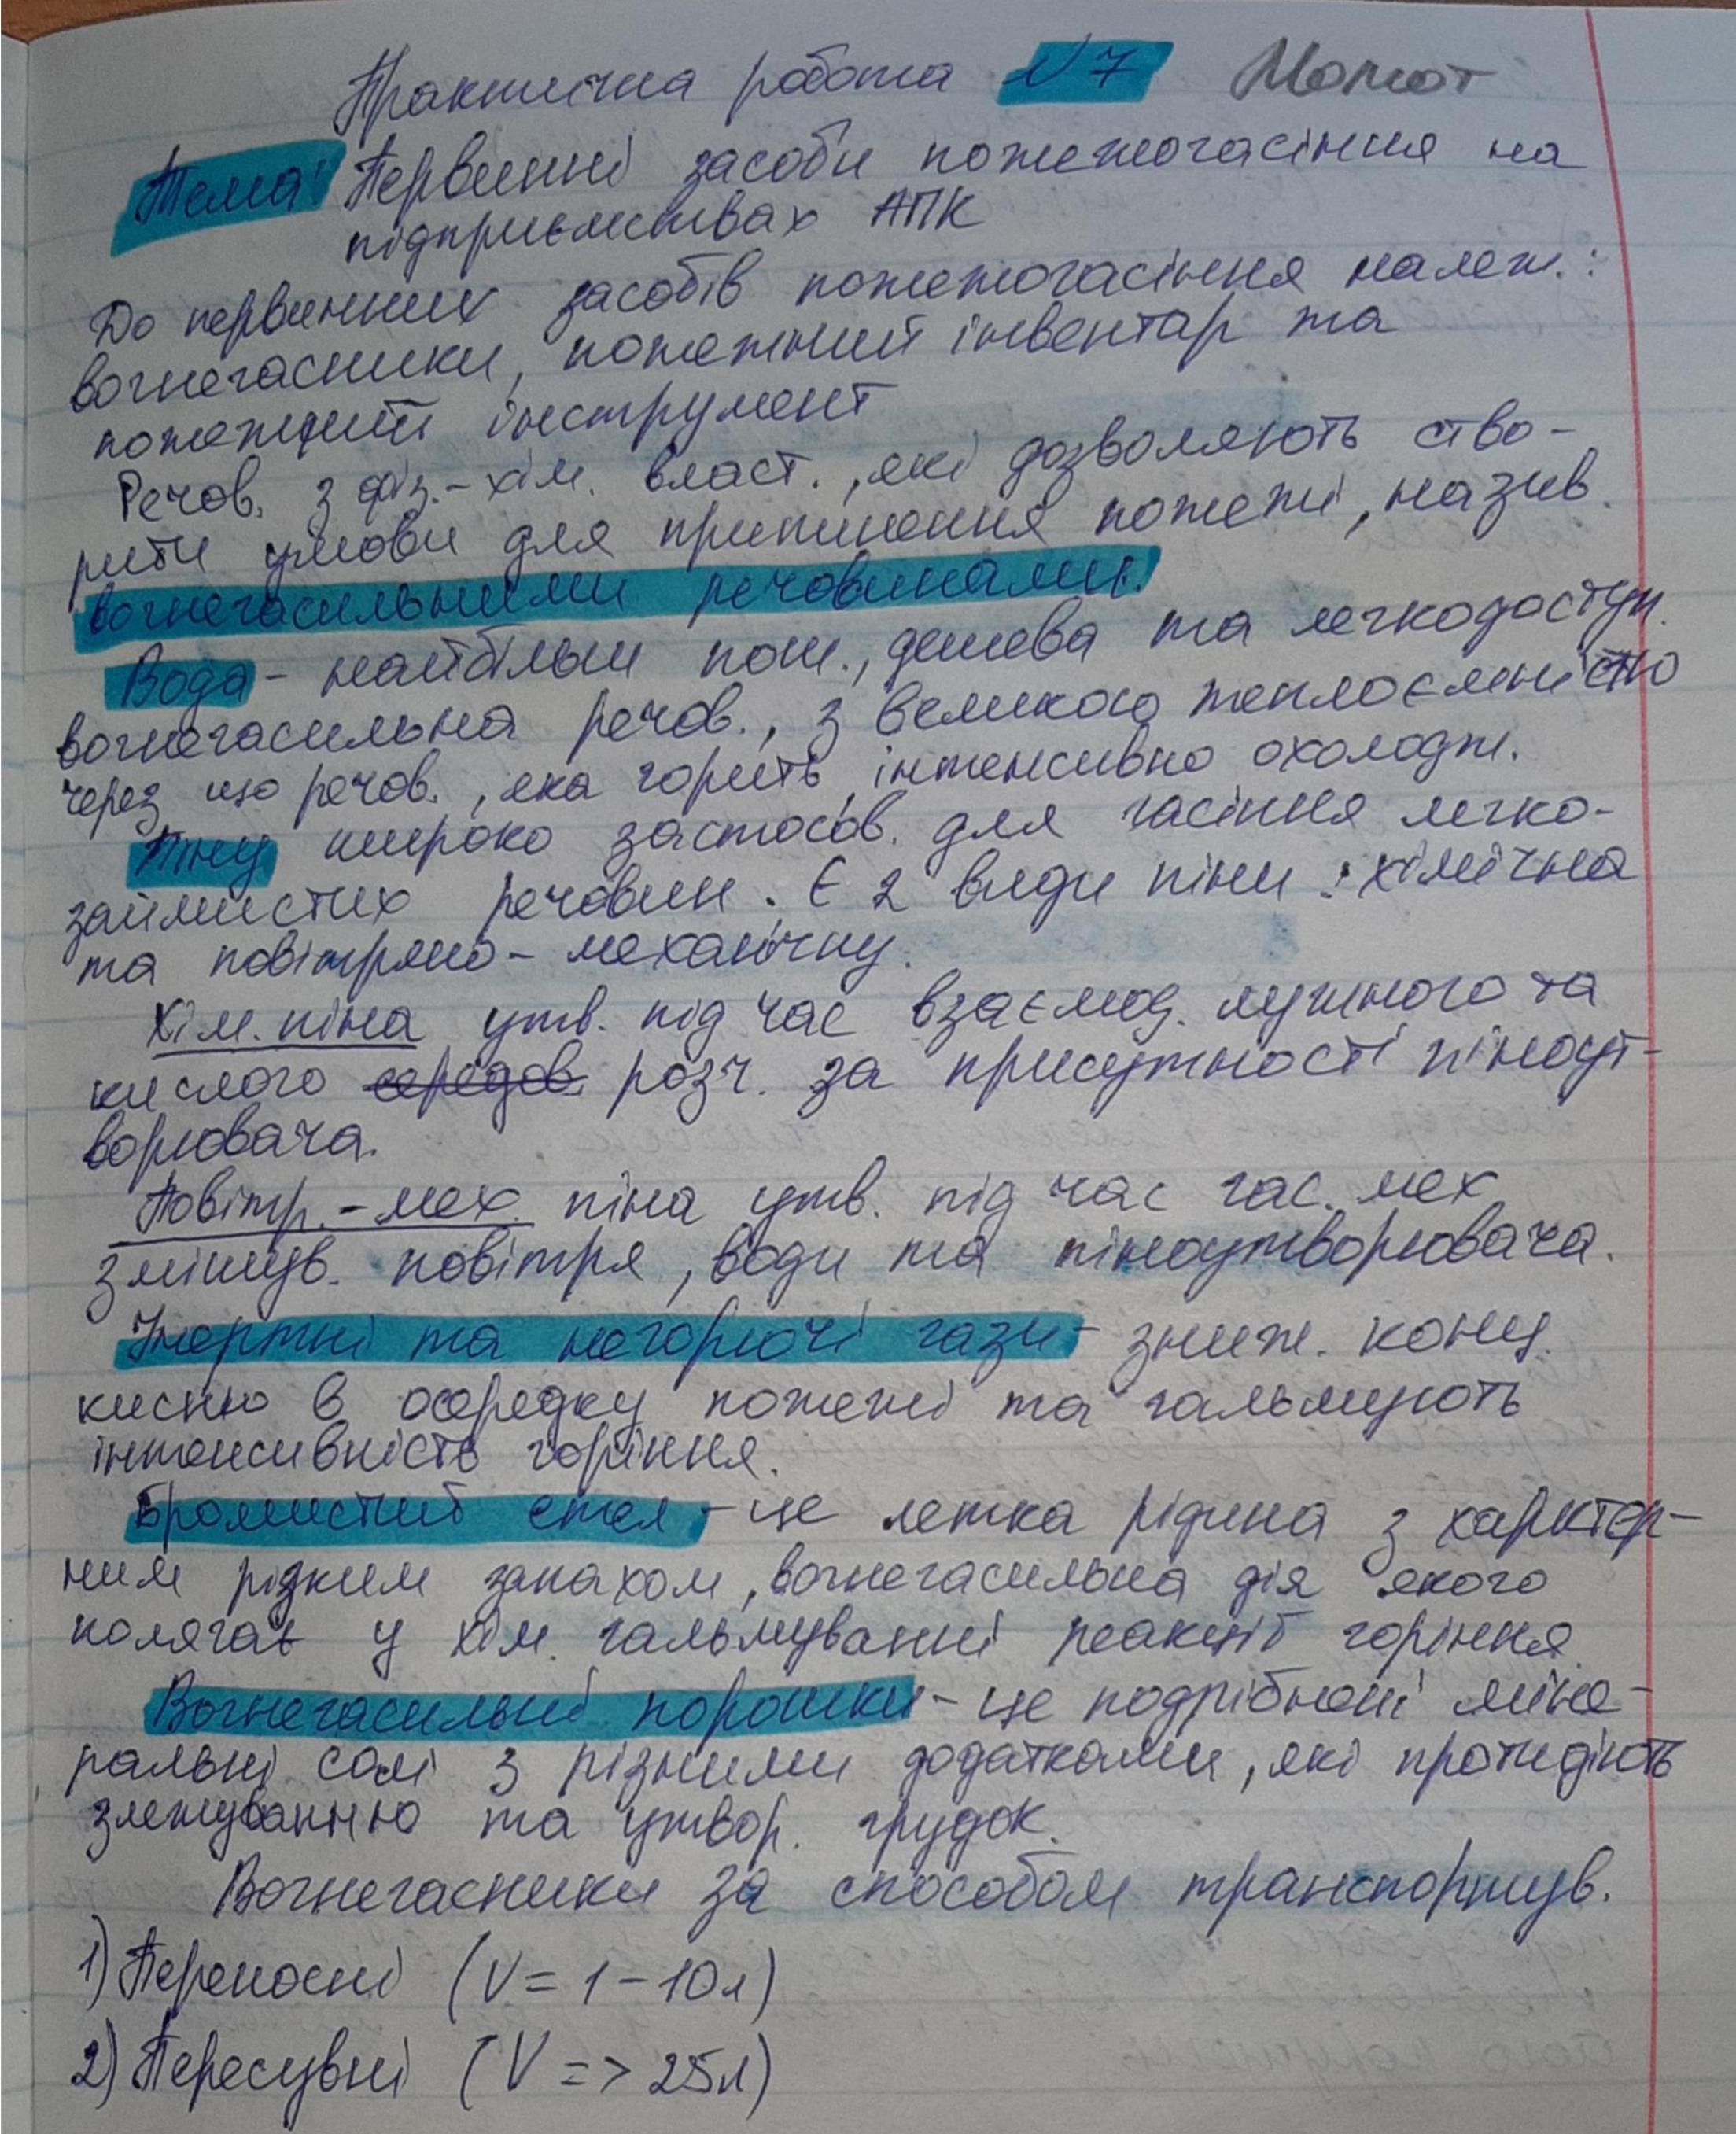 Практична робота №7
Тема: Первинні засоби пожежогасіння на
підприємствах АПК
До первинних засобів пожежогасіння належ.:
вогнегасники, пожежний інвентар та
пожежний інструмент
Речов. з фіз.-хім. власт., які дозволяють ство-
рити умови для припинення пожежі, назив.
вогнегасильними речовинами.
Вода - найбільш пош., дешева та легкодоступ.
вогнегасильна речов., з великою теплоємністю
через що речов., яка горить, інтенсивно охолодж.
Піну широко застосов. для гасіння легко-
займистих речовин. Є 2 види піни: хімічна
та повітряно-механічну.
Хім. піна утв. під час взаємод. лужного та
кислого середов. розч. за присутності піноут-
ворювача.
Повітр.-мех. піна утв. під час гас. мех
змішув. повітря, води та піноутворювача.
Інертні та негорючі гази - зниж. конц.
кисню в осередку пожежі та гальмують
інтенсивність горіння.
Бромистий етил - це летка рідина з характер-
ним різким запахом, вогнегасильна дія якого
полягає у хім. гальмуванні реакції горіння
Вогнегасильні порошки - це подрібнені міне-
ральні солі з різними додатками, які протидіють
злежуванню та утвор. грудок.
Вогнегасники за способом транспортув.
1) Переносні (V = 1-10л)
2) Пересувні (V => 25л)